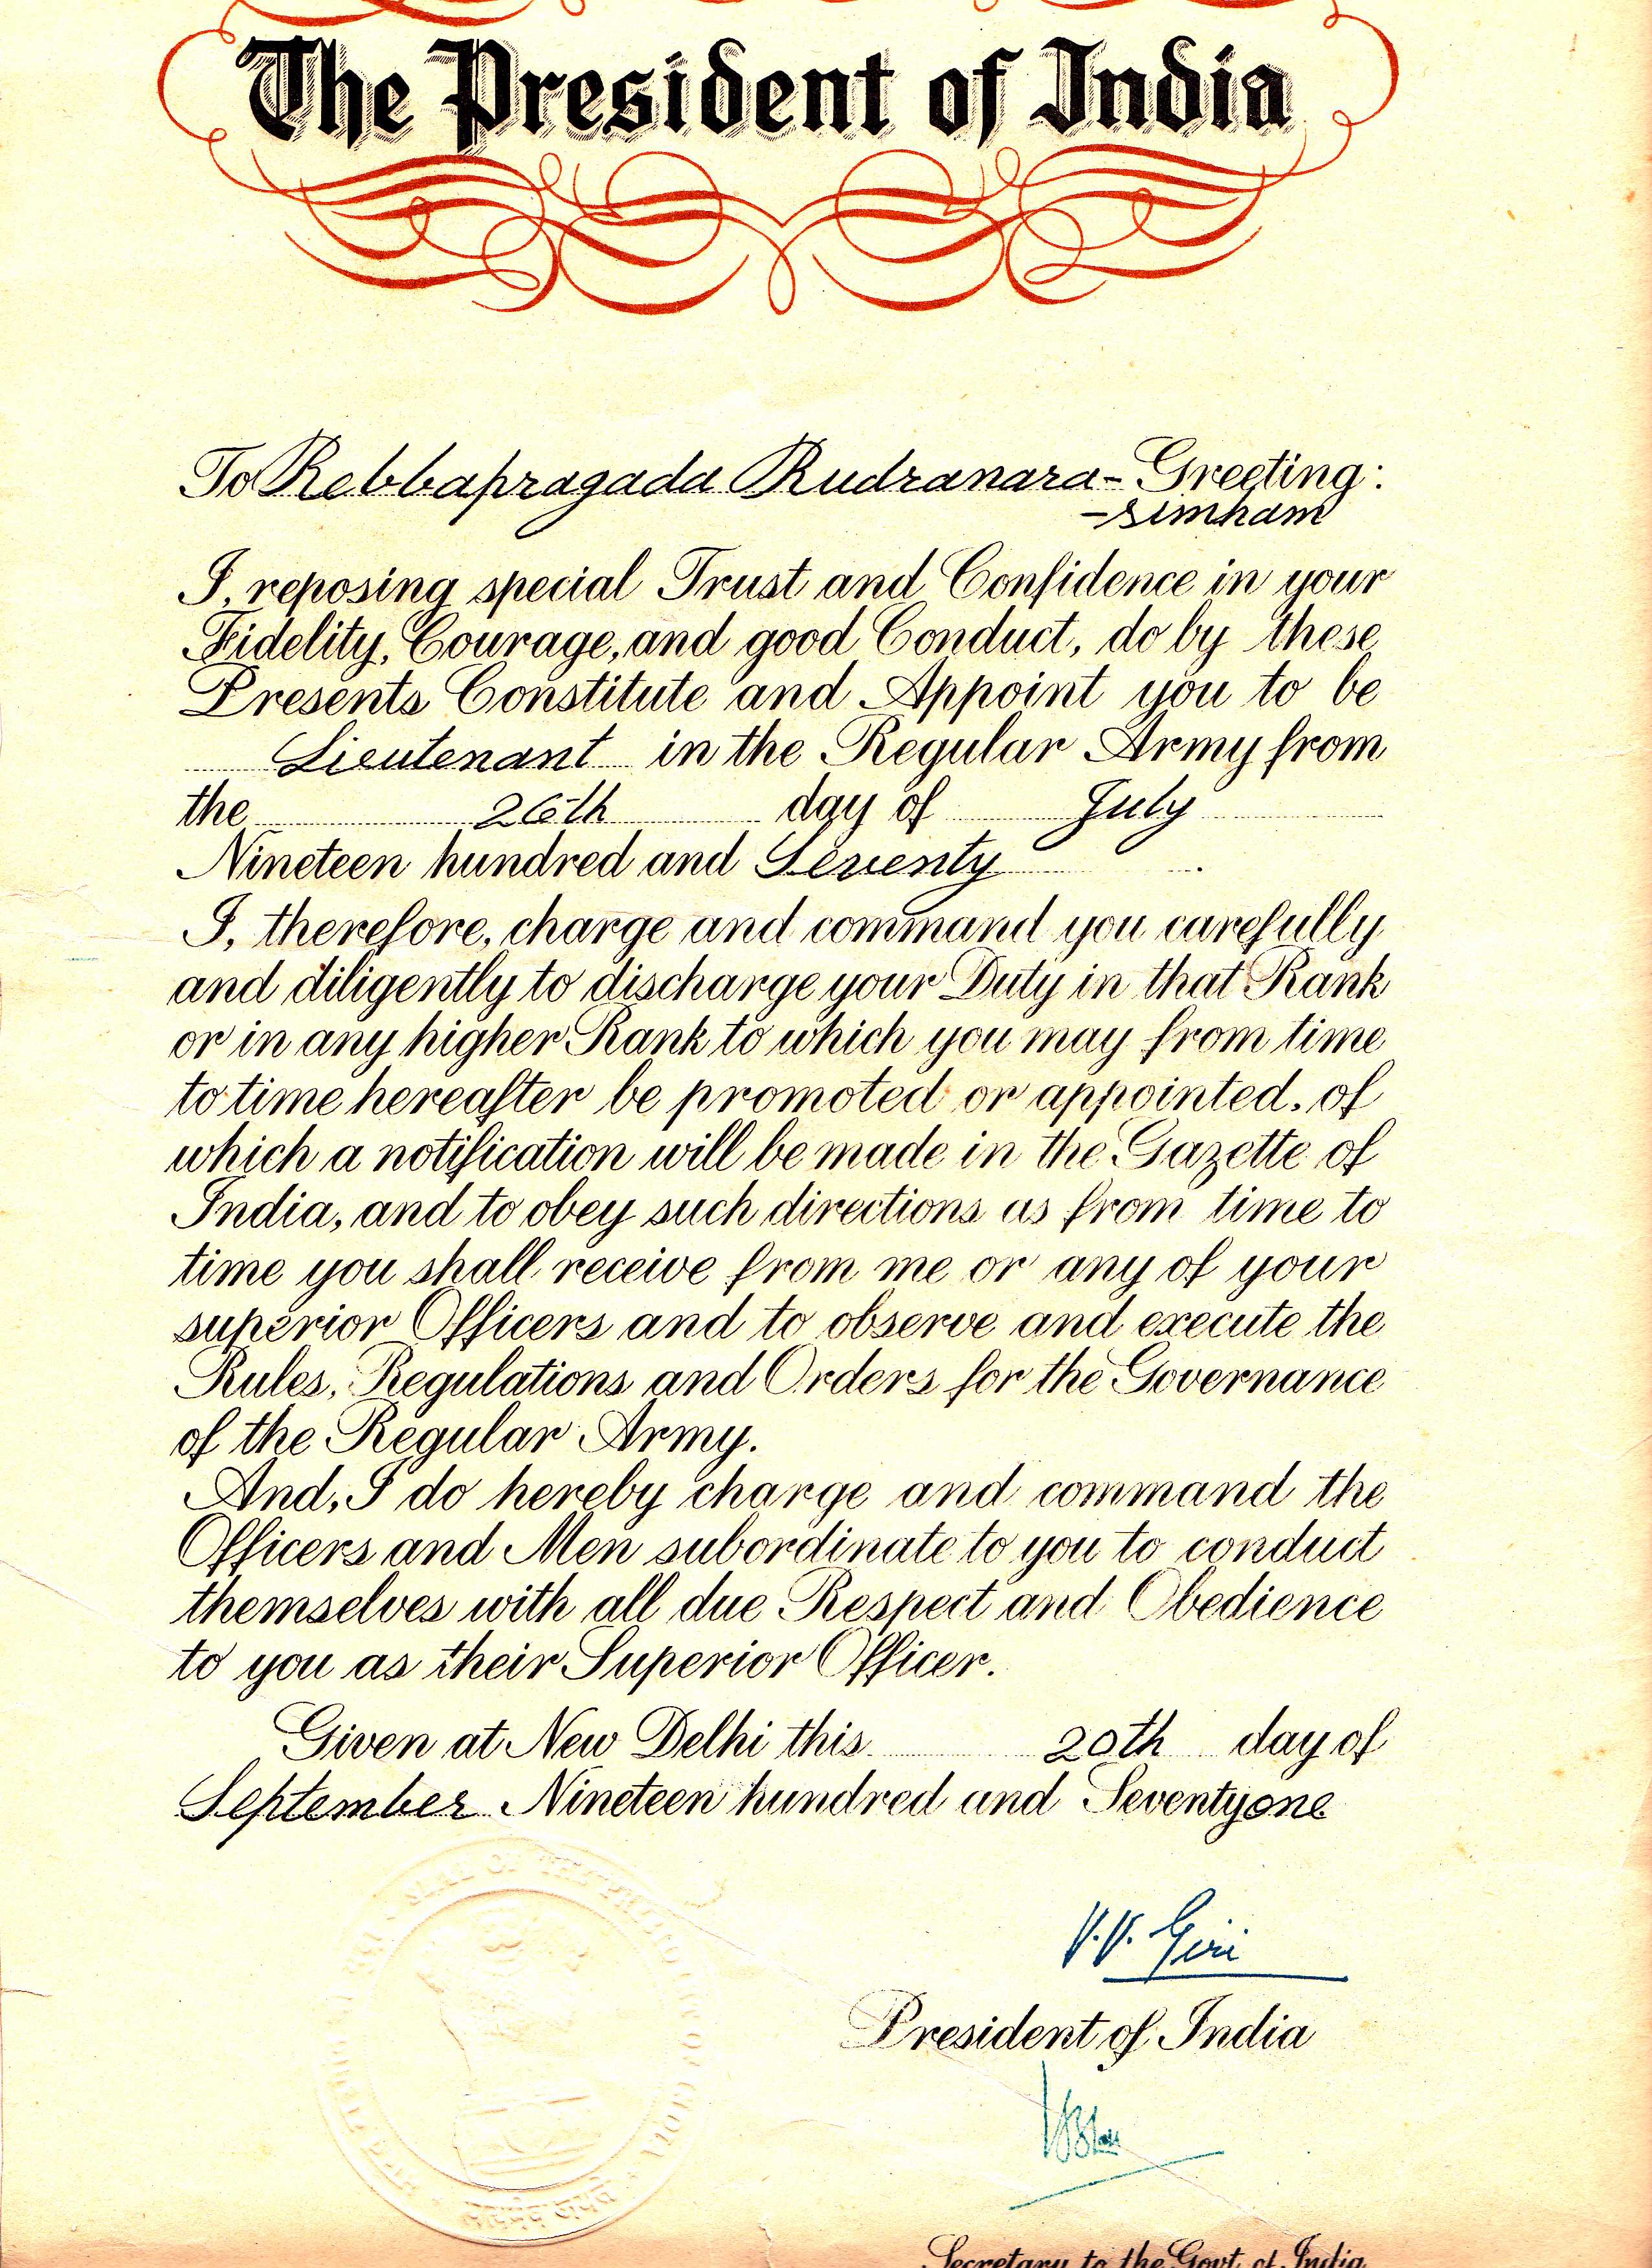 The President of India
To Rebbapragada Rudranara- Greeting:
-simham
I, reposing special Trust and Confidence in your
Fidelity, Courage, and good Conduct, do by these
Presents Constitute and Appoint you to be
Lieutenant in the Regular Army from
the 26th day of July
Nineteen hundred and Seventy
I, therefore, charge and command you carefully
and diligently to discharge your Duty in that Rank
or in any higher Rank to which you may from time
to time hereafter be promoted or appointed, of
which a notification will be made in the Gazette of
India, and to obey such directions as from time to
time you shall receive from me or any of your
superior Officers and to observe and execute the
Rules, Regulations and Orders for the Governance
of the Regular Army.
And, I do hereby charge and command the
Officers and Men subordinate to you to conduct
themselves with all due Respect and Obedience
to you as their Superior Officer.
Given at New Delhi this 20th day of
September Nineteen hundred and Seventyone
V.V. Giri
President of India
Secretary to the Govt. of India